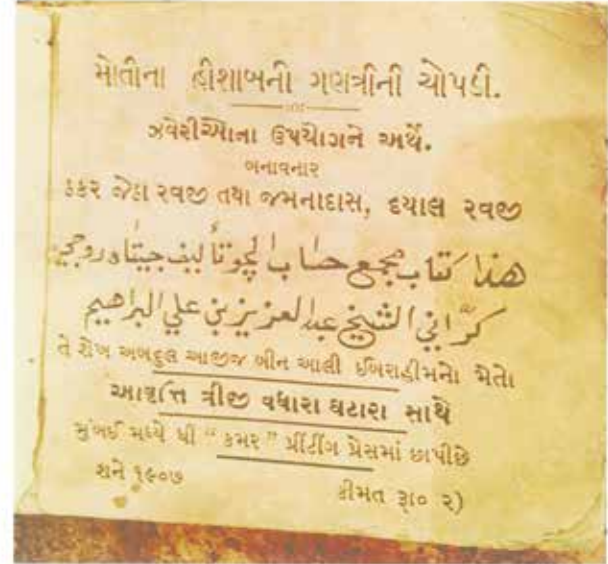 મોતીના હીશાબની ગણત્રીની ચોપડી.
ઝવેરીઓના ઉપયોગને અર્થે.
બનાવનાર
ઠકર જેઠા રવજી તથા જમનાદાસ, દયાલ રવજી
هذا كتاب مجمع حساب الچو تأليف جيتاه روجي
كرّاني الشيخ عبد العزيز بن علي البراهيم
તે શેખ અબદુલ આજીજ બીન આલી ઈબરાહીમનો મેતો
આવૃત્તિ ત્રીજી વધારા ઘટારા સાથે
મુંબઈ મધ્યે ધી “કમર” પ્રીંટીંગ પ્રેસમાં છાપીછે
શને ૧૯૦૭
કીમત રૂા૦ ૨)